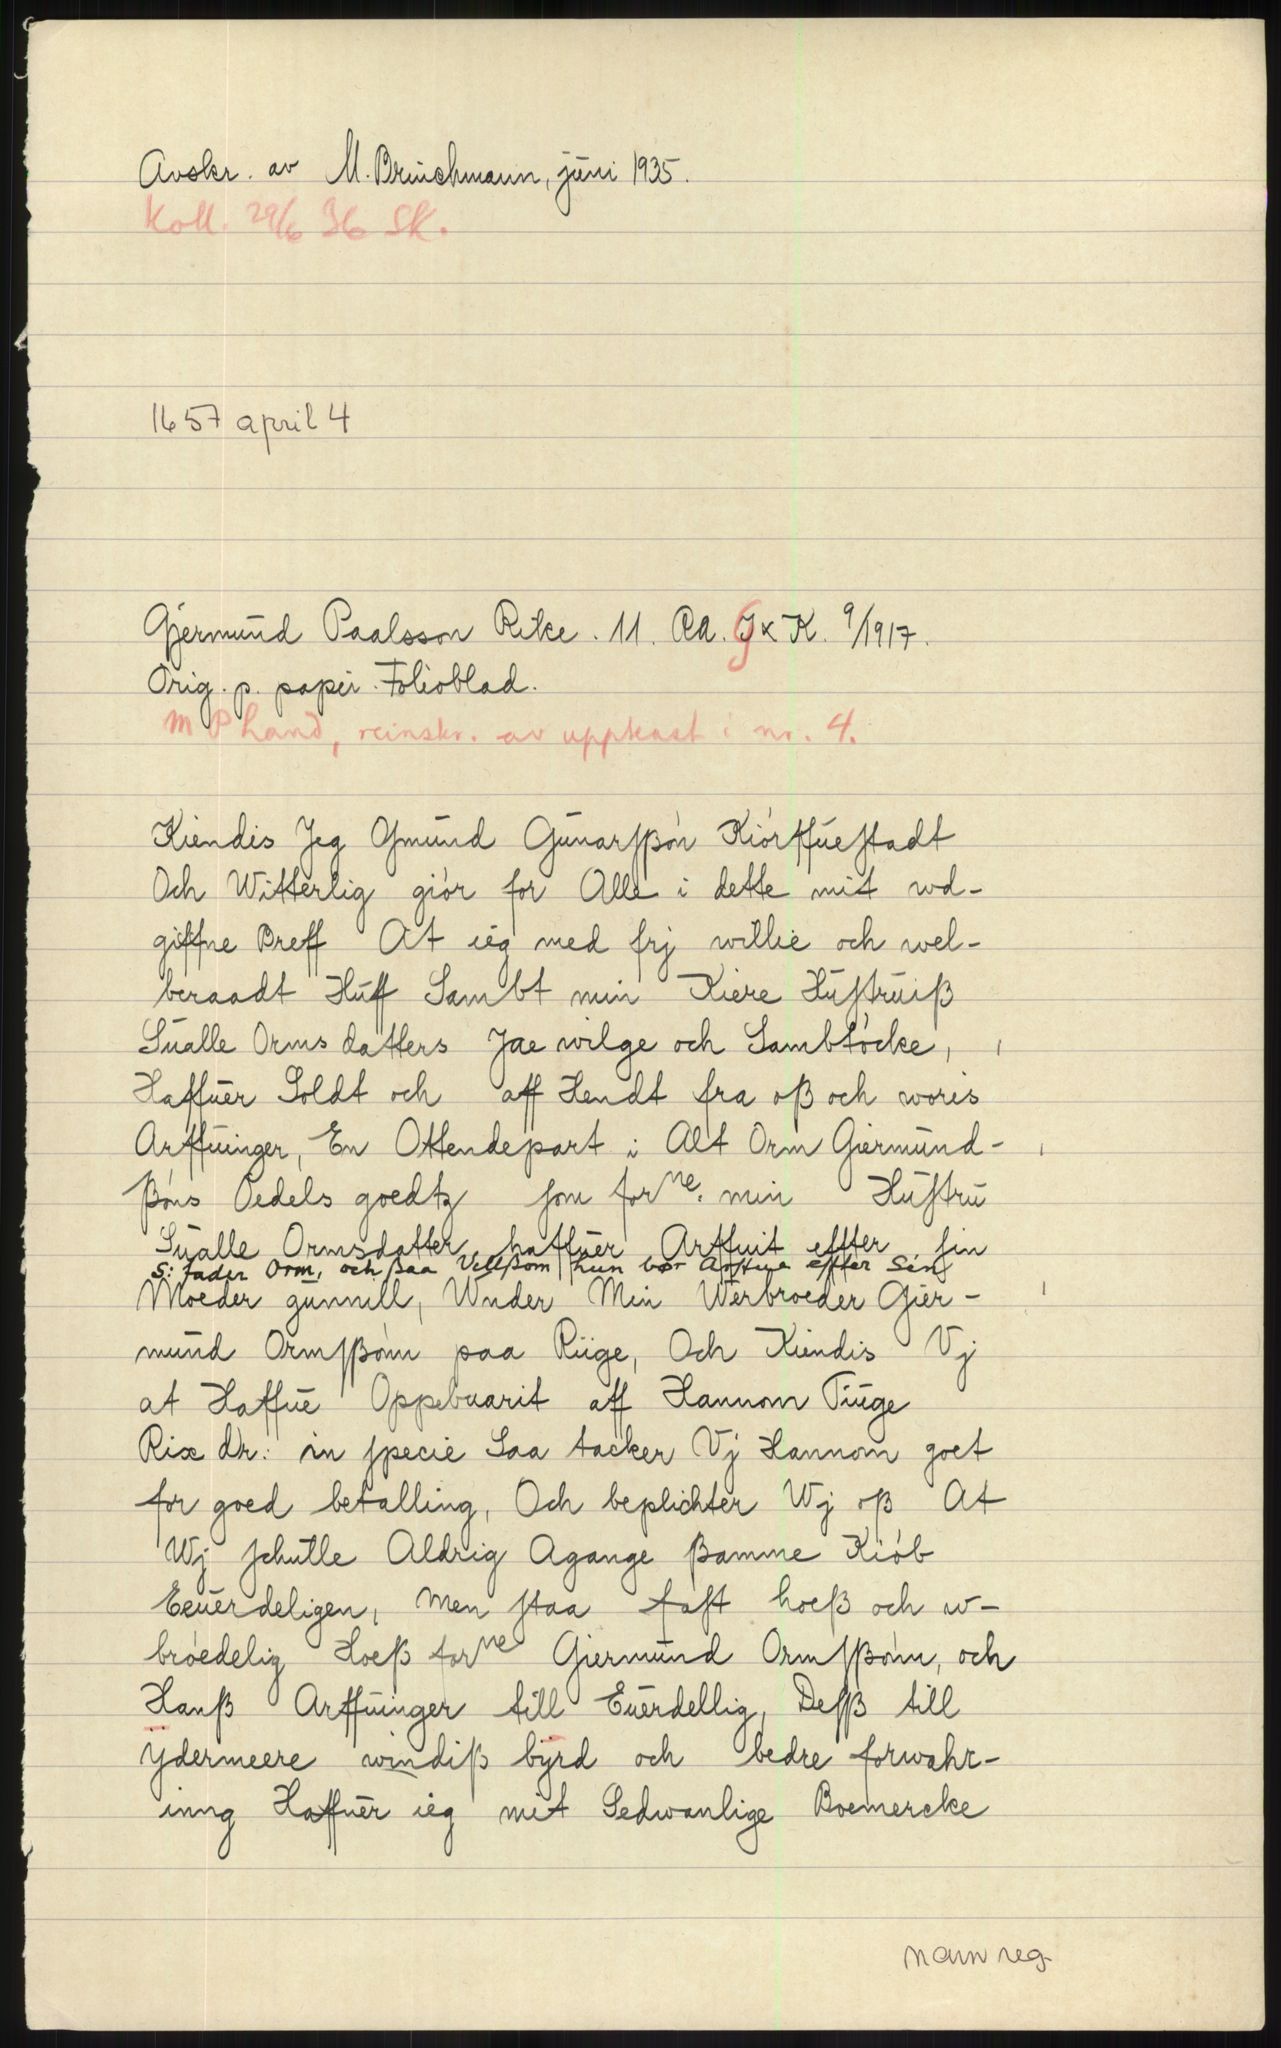 Avskr. av M. Brinchmann, juni 1935.
Koll. 29/6 36 SK.
1657 april 4
Gjermund Paalsson Rike. 11. RA. J x K. 9/1917.
Orig. p. papir. Folioblad.
M P hand, reinskr. av uppkast i nr. 4.
Kiendis Jeg Gmund Gunarßøn Kiórffuestadt
Och Witterlig giór for Alle i dette mit wd-
giffne Breff At ieg med frj willie och wel-
beraadt Huff Sambt min Kiere Hustruiß
Sualle Ormsdatters Jae wilge och Sambtócke,
Haffuer Soldt och aff Hendt fra oß och woris
Arffuinger, En Ottendepart i Alt Orm Giermund-
ßóns Oedels goedtz som forne. min Hustru
Sualle Ormsdatter, haffuer Arffuit effter sin
S: fader Orm, och ßaa Velßom hun bór Arffue effter Sin
Moeder gunnill, Wnder Min Werbroeder Gier-
mund Ormßóm paa Riige, Och Kiendis Vj
at Haffue Oppebuarit aff Hannom Tiuge
Rix dr: in specie Saa tacker Vj Hannom goet
for goed betalling, Och beplichter Wj oß At
Wj schulle Aldrig Agange ßamme Kiób
Eeuerdeligen, Men staa fast hoeß och w-
bróedelig Hoeß forne Giermund Ormßóm, och
Hanß Arffuinger till Euerdellig, Deßß till
ÿdermeere windiß bÿrd och bedre forwahr-
inng Haffuer ieg mit Sedwanlige Boemercke
navnreg.